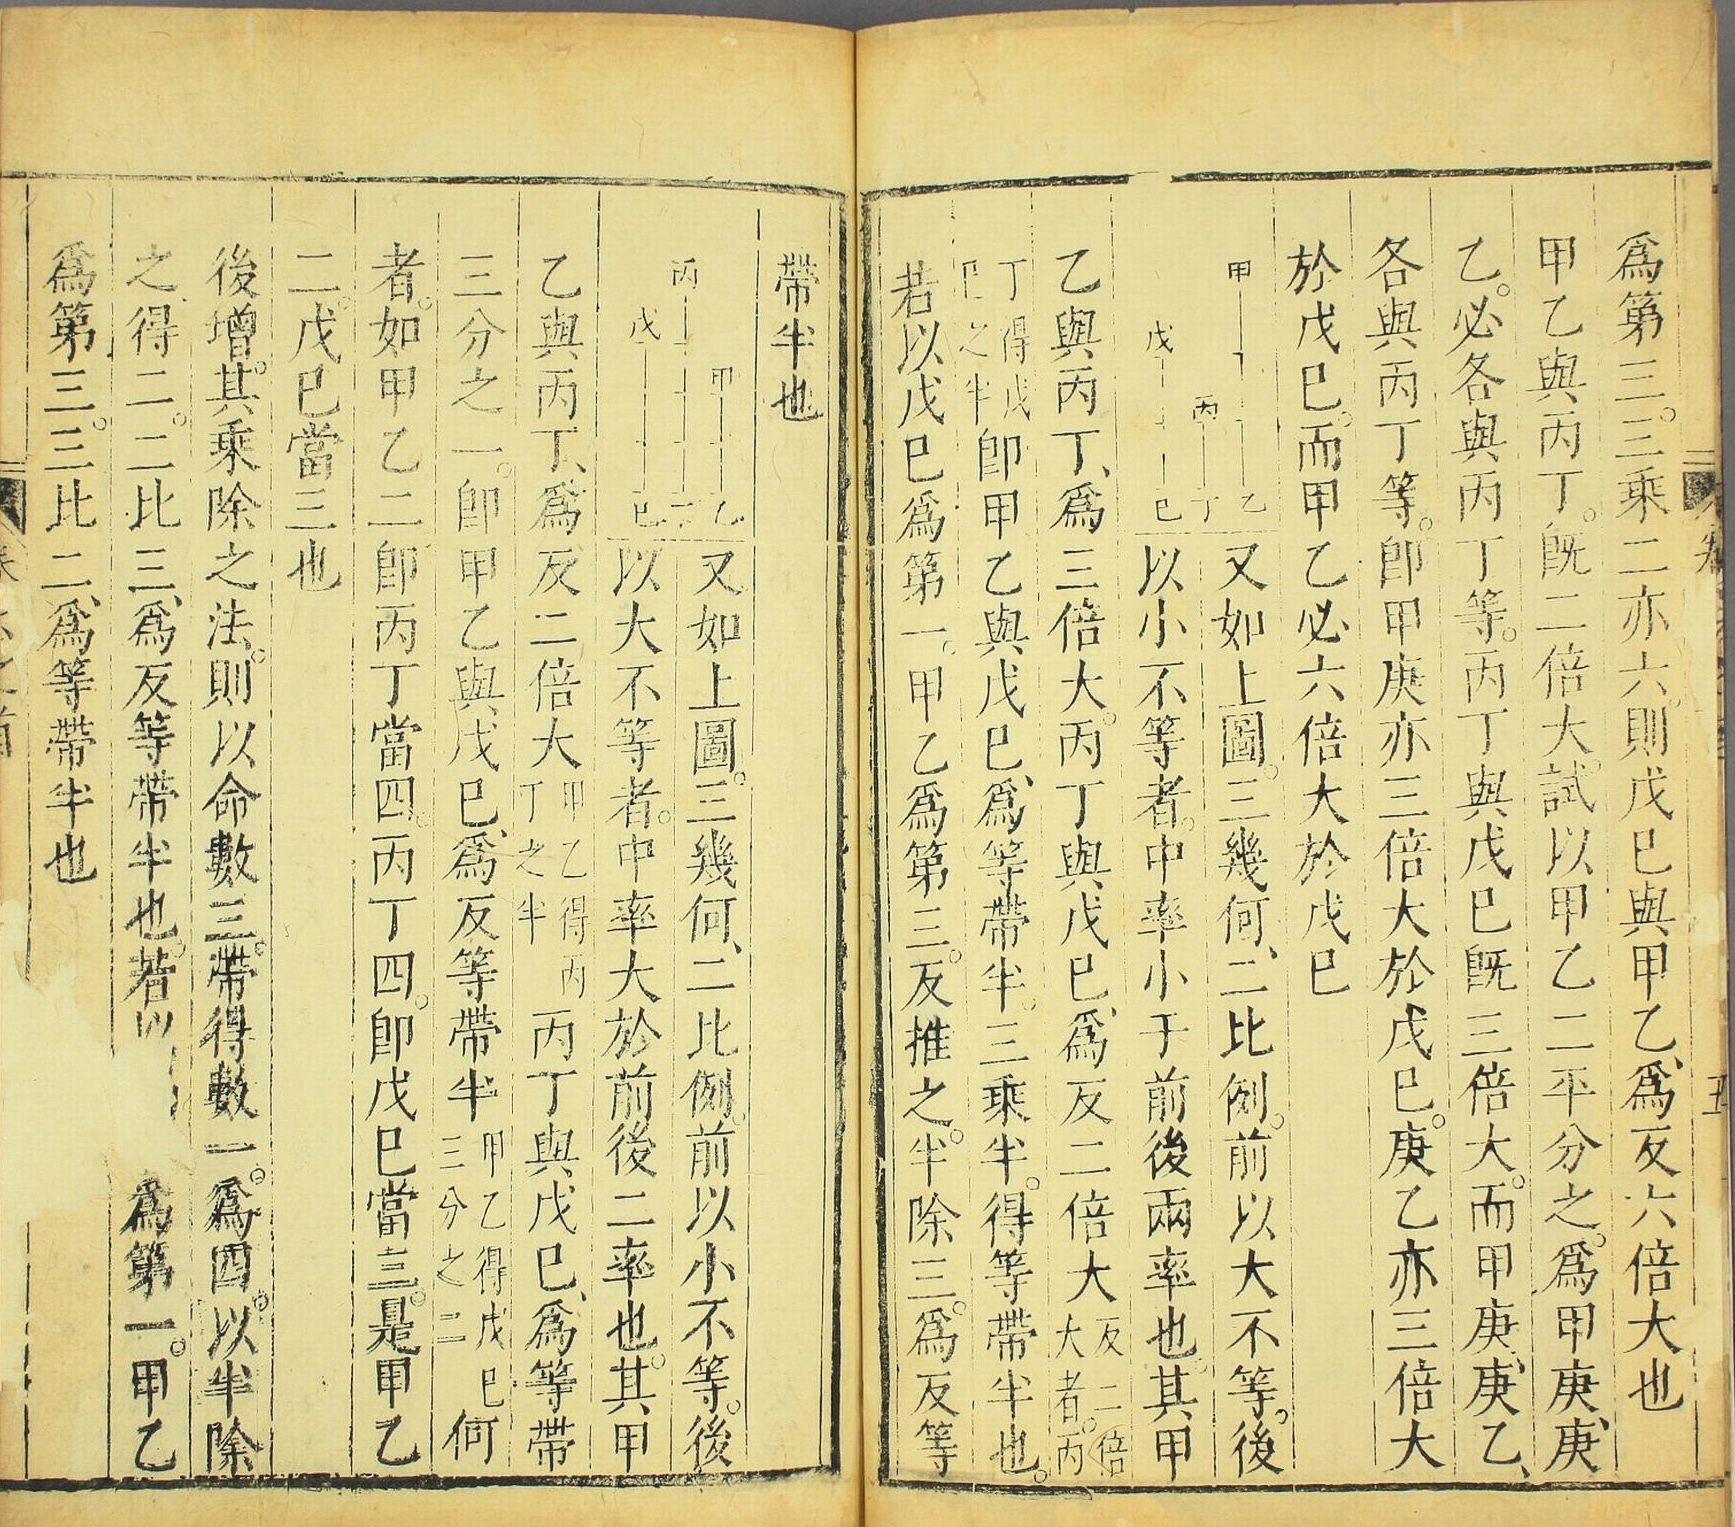 爲第三。三乘二亦六。則戊己與甲乙、爲反六倍大也
甲乙與丙丁。旣二倍大。試以甲乙二平分之。爲甲庚、庚
乙。必各與丙丁等。丙丁與戊己旣三倍大。而甲庚、庚乙、
各與丙丁等。卽甲庚亦三倍大於戊己。庚乙亦三倍大
於戊己。而甲乙必六倍大於戊己
甲 乙
丙 丁
戊 己
又如上圖。三幾何、二比例。前以大不等。後
以小不等者。中率小于前後兩率也。其甲
乙與丙丁、爲三倍大。丙丁與戊己、爲反二倍大反二倍大者。丙
丁得戊己之半卽甲乙與戊己、爲等帶半。三乘半。得等帶半也。
若以戊己爲第一。甲乙爲第三。反推之。半除三。爲反等
帶半也
甲 乙
丙
戊 己
又如上圖。三幾何、二比例。前以小不等。後
以大不等者。中率大於前後二率也。其甲
乙與丙丁、爲反二倍大甲乙得丙丁之半丙丁與戊己、爲等帶
三分之一。卽甲乙與戊己、爲反等帶半甲乙得戊己三分之二何
者。如甲乙二卽丙丁當四。丙丁四。卽戊己當三。是甲乙
二。戊己當三也
後增。其乘除之法。則以命數三。帶得數一。爲四。以半除
之得二。二比三、爲反等帶半也。若以 爲第一。甲乙
爲第三。三比二、爲等帶半也
五